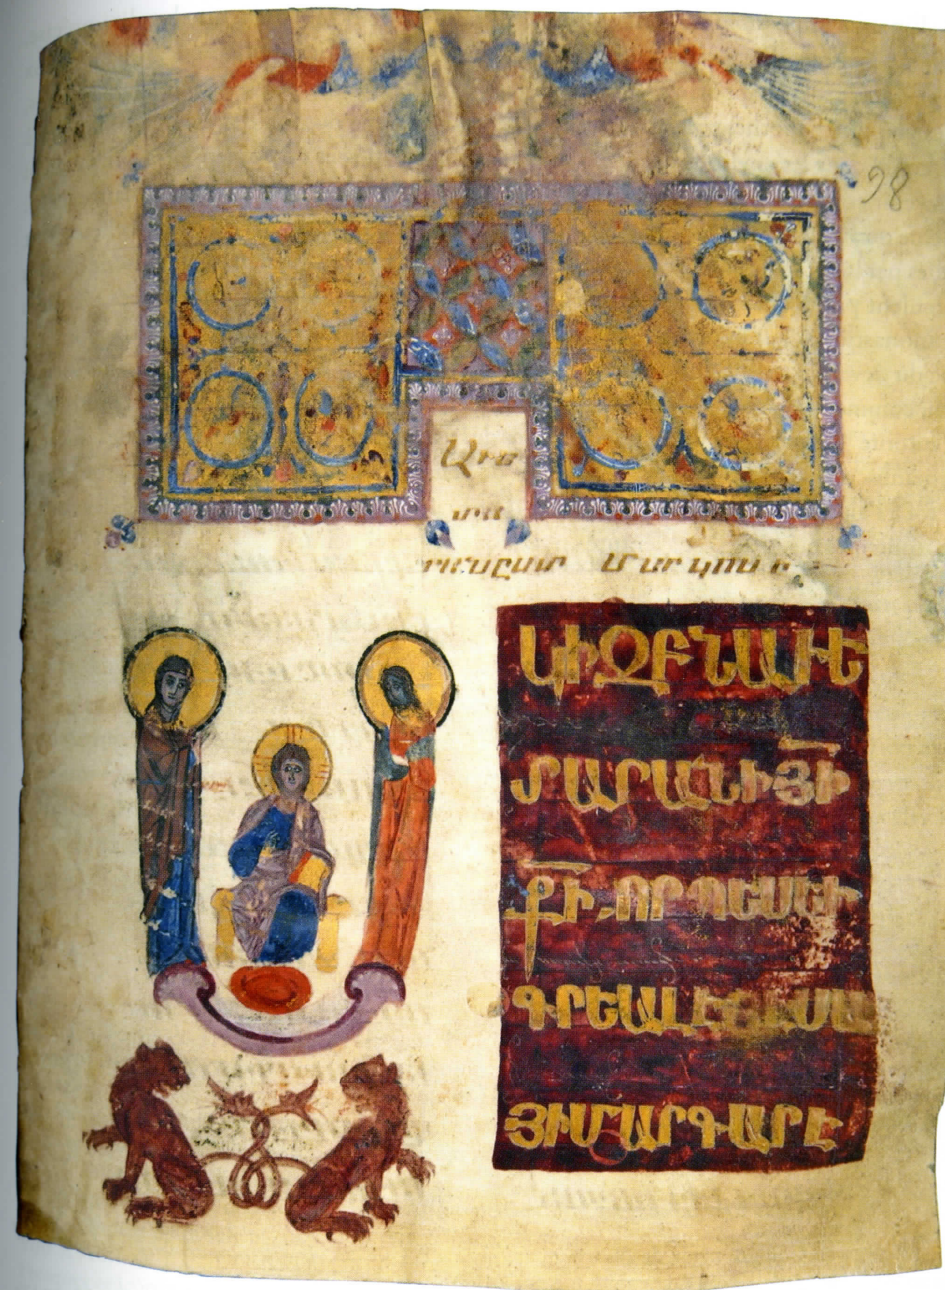 98
Աւե
տա
րանըստ Մարկոսի
ՍԿԻԶԲՆԱՒԵ
ՏԱՐԱՆԻՅԻ
ՔԻ, ՈՐՊԵՍԵՒ
ԳՐԵԱԼԷՅԵՍԱ
ՅԻՄԱՐԳԱՐԷ